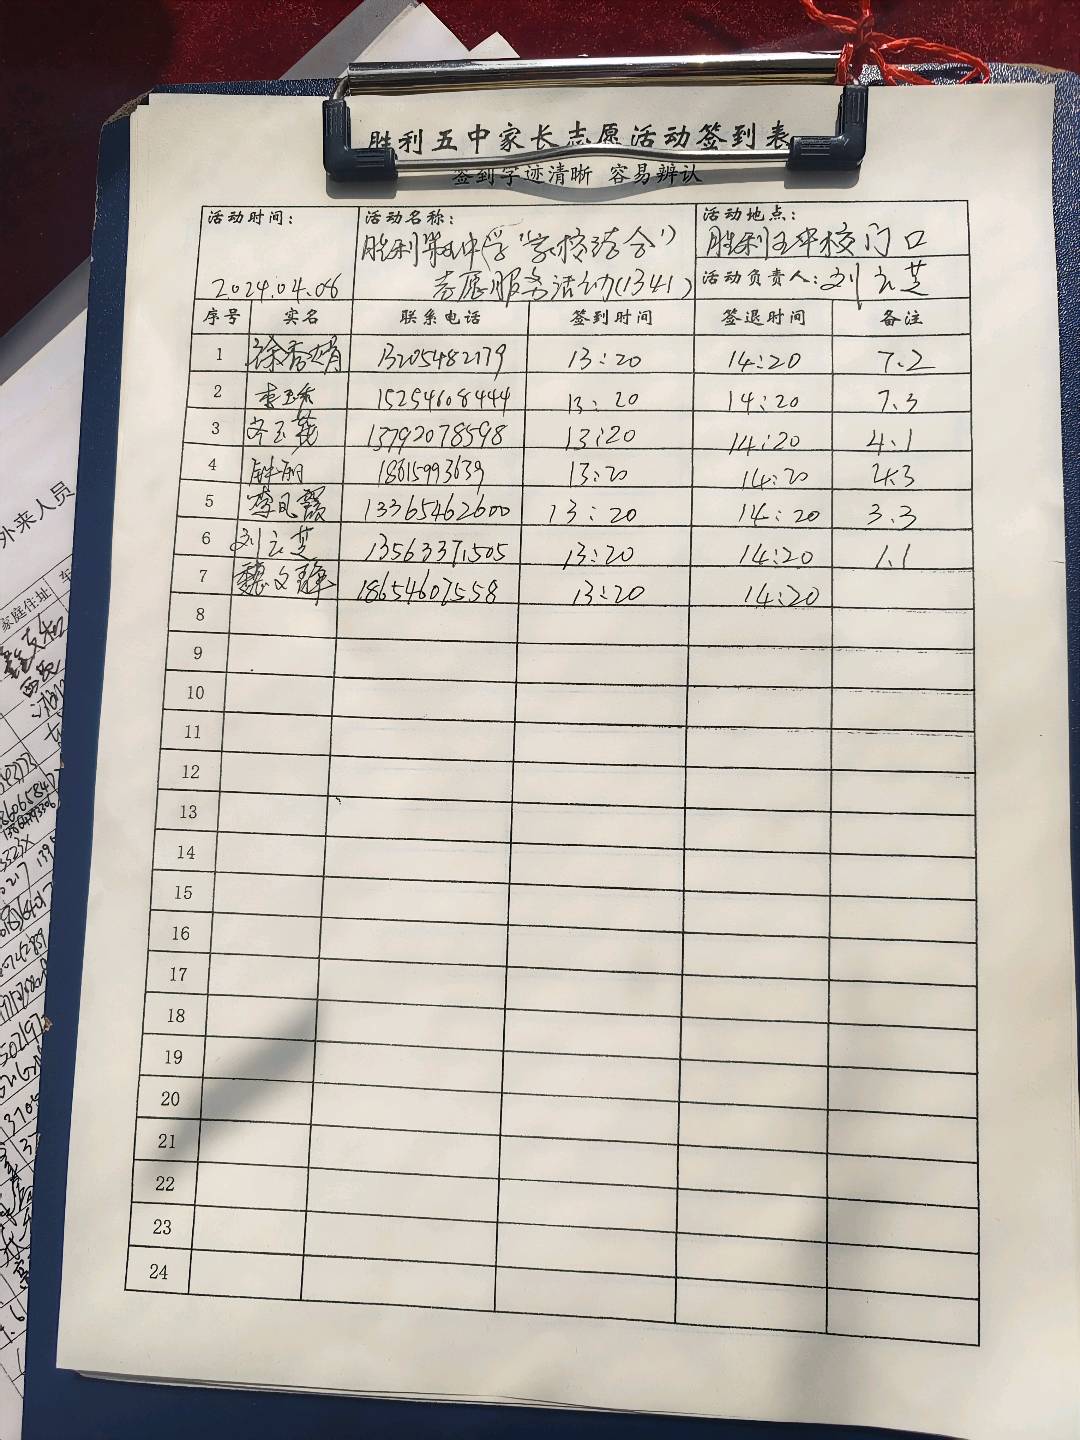 胜利五中家长志愿活动签到表
签到字迹清晰 容易辨认
活动时间： 活动名称： 活动地点：
胜利第五中学"家校结合" 胜利五中校门口
2024.04.06 志愿服务活动(1341) 活动负责人：刘云芝
序号 实名 联系电话 签到时间 签退时间 备注
1 徐秀娟 13205482179 13:20 14:20 7.2
2 李玉香 15254608444 13:20 14:20 7.3
3 13792078598 13:20 14:20 4.1
4 钟丽 18615993639 13:20 14:20 4.3
5 李凤霞 13365462600 13:20 14:20 3.3
6 刘云芝 13563371505 13:20 14:20 1.1
7 魏文静 18654607558 13:20 14:20
8
9
10
11
12
13
14
15
16
17
18
19
20
21
22
23
24
外来人员
家庭住址